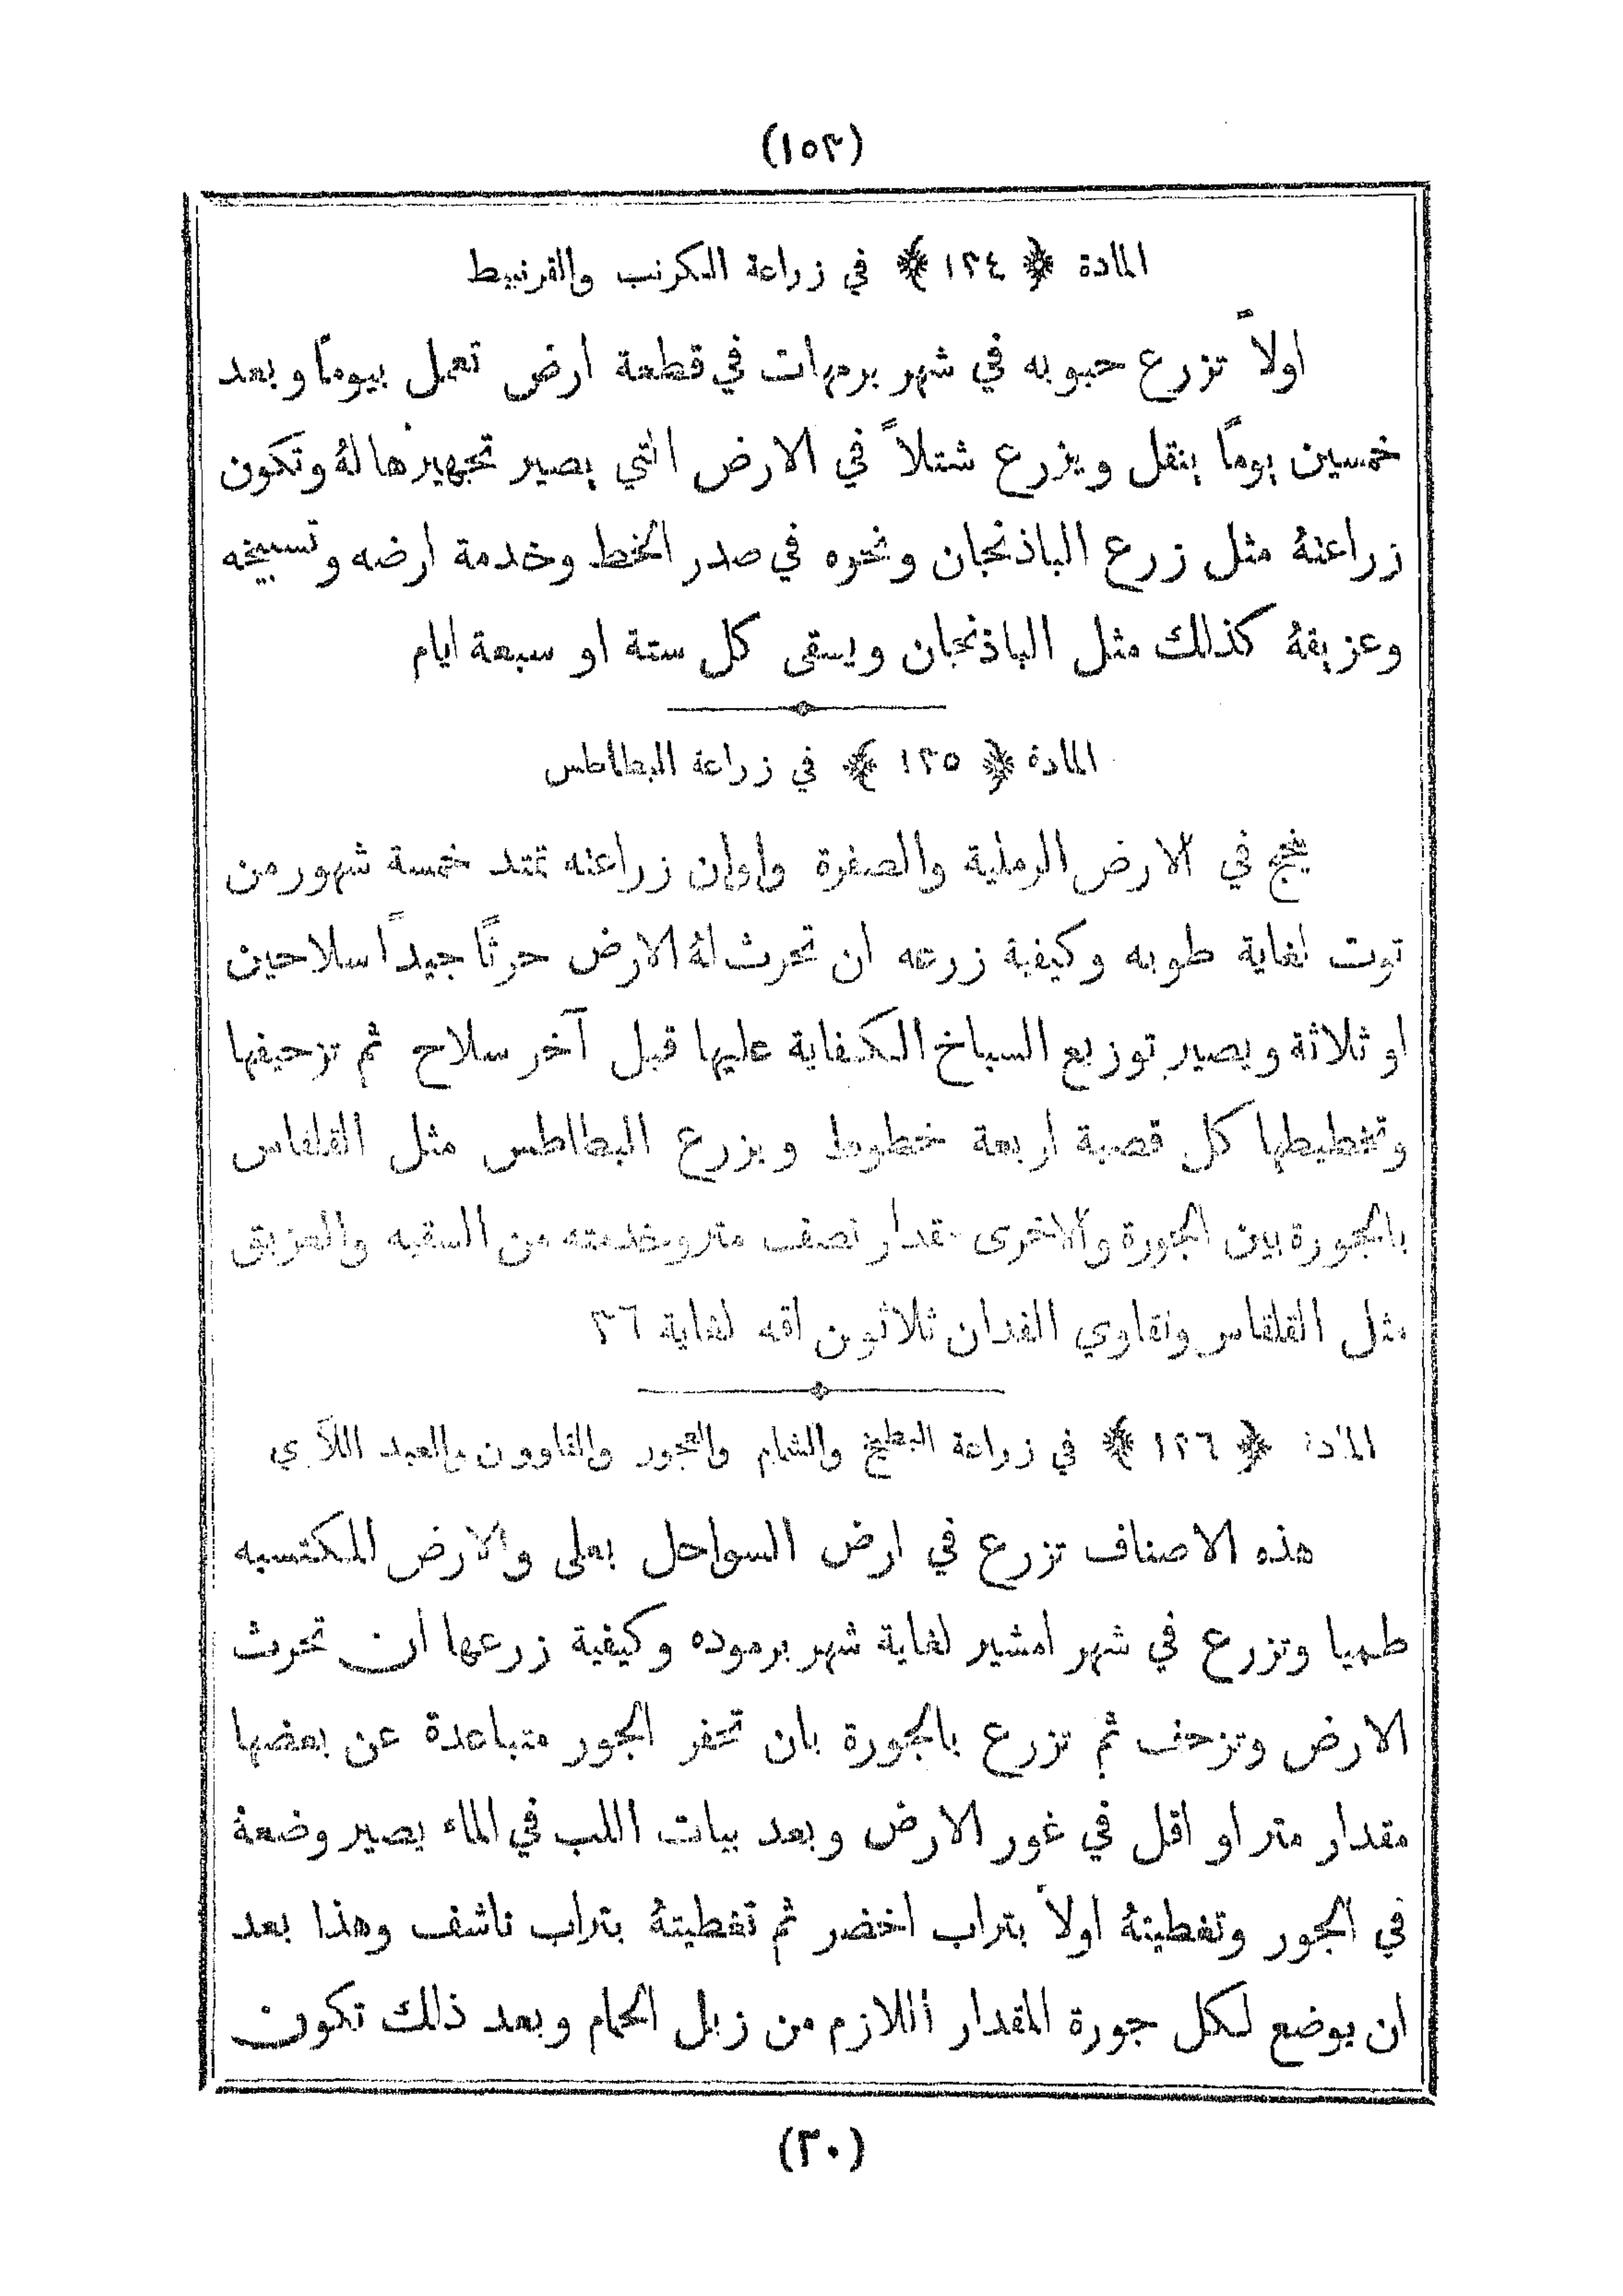 (١٥٣)
المادة ﴿ ١٢٤ ﴾ في زراعة الكرنب والقرنبيط
اولاً تزرع حبوبه في شهر برمهات في قطعة ارض تعمل بيوماً وبعد
خمسين يوماً ينقل ويزرع شتلاً في الارض التي يصير تجهيزها لهُ وتكون
زراعتهُ مثل زرع الباذنجان ونحوه في صدر الخط وخدمة ارضه وتسبيخه
وعزيقهُ كذلك مثل الباذنجان ويسقى كل ستة او سبعة ايام
المادة ﴿ ١٢٥ ﴾ في زراعة البطاطس
ينجح في الارض الرملية والصفرة واوان زراعته تمتد خمسة شهور من
توت لغاية طوبه وكيفية زرعه ان تحرث لهُ الارض حرثًا جيداً سلاحين
او ثلاثة ويصير توزيع السباخ الكفاية عليها قبل آخر سلاح ثم تزحيفها
وتخطيطها كل قصبة اربعة خطوط ويزرع البطاطس مثل القلقاس
بالجورة بين الجورة والاخرى مقدار نصف متر وخدمته من السقيه والعزيق
مثل القلقاس وتقاوي الفدان ثلاثون اقه لغاية ٣٦
المادة ﴿ ١٢٦ ﴾ في زراعة البطيخ والشمام والعجور والقاوون والعبد اللآوي
هذه الاصناف تزرع في ارض السواحل بعلى والارض المكتسبه
طميا وتزرع في شهر امشير لغاية شهر برموده وكيفية زرعها ان تحرث
الارض وتزحف ثم تزرع بالجورة بان تحفر الجور متباعدة عن بعضها
مقدار متر او اقل في غور الارض وبعد بيات اللب في الماء يصير وضعهُ
في الجور وتغطيتهُ اولاً بتراب اخضر ثم تغطيتهُ بتراب ناشف وهذا بعد
ان يوضع لكل جورة المقدار اللازم من زبل الحمام وبعد ذلك تكون
(٢٠)